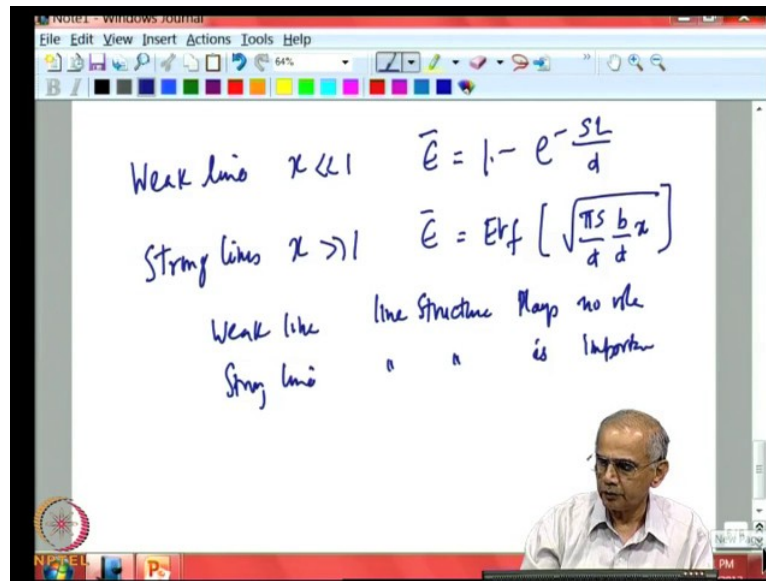 Note1 - Windows Journal
File Edit View Insert Actions Tools Help
64%
B I
Weak line x << 1 ε̄ = 1 - e^-SL/d
Strong lines x >> 1 ε̄ = Erf [ √(πs/d b/d x) ]
Weak line line Structure Plays no role
Strong line " " is Importan
New Page
NPTEL
PM